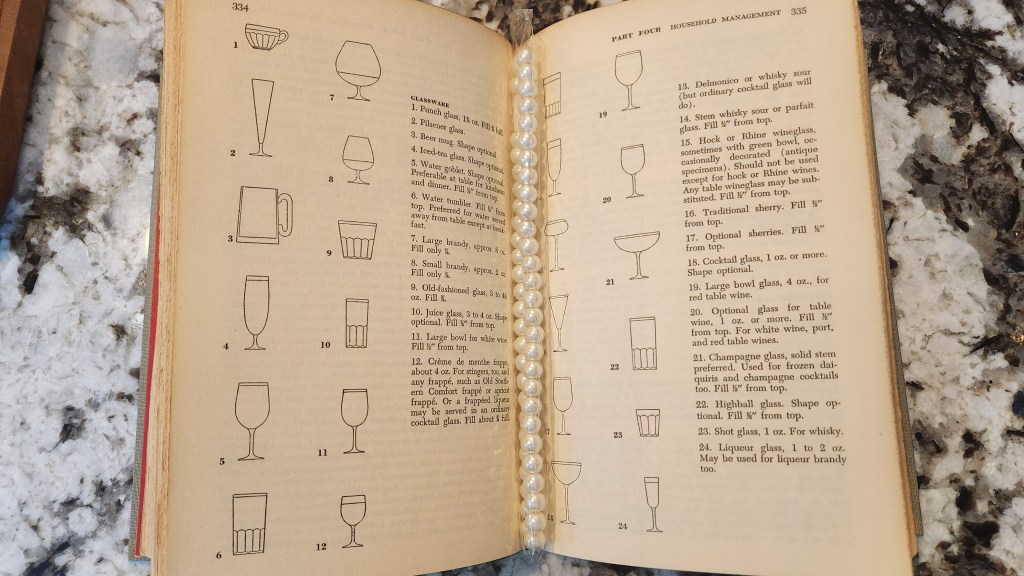 334
1
2
3
4
5
6
7
8
9
10
11
12
GLASSWARE
1. Punch glass, 1½ oz. Fill ¾ full.
2. Pilsener glass.
3. Beer mug. Shape optional.
4. Iced-tea glass. Shape optional.
5. Water goblet. Shape optional.
Preferable at table for luncheon
and dinner. Fill ¾" from top.
6. Water tumbler. Fill
top. Preferred for water served
away from table except at break-
fast.
7. Large brandy, approx. oz.
Fill only ¼.
8. Small brandy, approx. 2 oz.
Fill only ¼.
9. Old-fashioned glass, 3 to
oz. Fill ¾.
10. Juice glass, 3 to 4 oz. Shape
optional. Fill from top.
11. Large bowl for white wine.
Fill from top.
12. Crème de menthe frappé,
about 4 oz. For stingers, too, and
any frappé, such as Old South-
ern Comfort frappé or apricot
frappé. Or a frappéed liqueur
may be served in an ordinary
cocktail glass. Fill about full.
PART FOUR HOUSEHOLD MANAGEMENT 335
19
20
21
22
23
24
13. Delmonico or whisky sour
(but ordinary cocktail glass will
do).
14. Stem whisky sour or parfait
glass. Fill ½" from top.
15. Hock or Rhine wineglass,
sometimes with green bowl, oc-
casionally decorated (antique
specimens). Should not be used
except for hock or Rhine wines.
Any table wineglass may be sub-
stituted. Fill ½" from top.
16. Traditional sherry. Fill ½"
from top.
17. Optional sherries. Fill ½"
from top.
18. Cocktail glass, 1 oz. or more.
Shape optional.
19. Large bowl glass, 4 oz., for
red table wine.
20. Optional glass for table
wine, 1 oz. or more. Fill ½"
from top. For white wine, port,
and red table wines.
21. Champagne glass, solid stem
preferred. Used for frozen dai-
quiris and champagne cocktails
too. Fill ½" from top.
22. Highball glass. Shape op-
tional. Fill ½" from top.
23. Shot glass, 1 oz. For whisky.
24. Liqueur glass, 1 to 2 oz.
May be used for liqueur brandy
too.